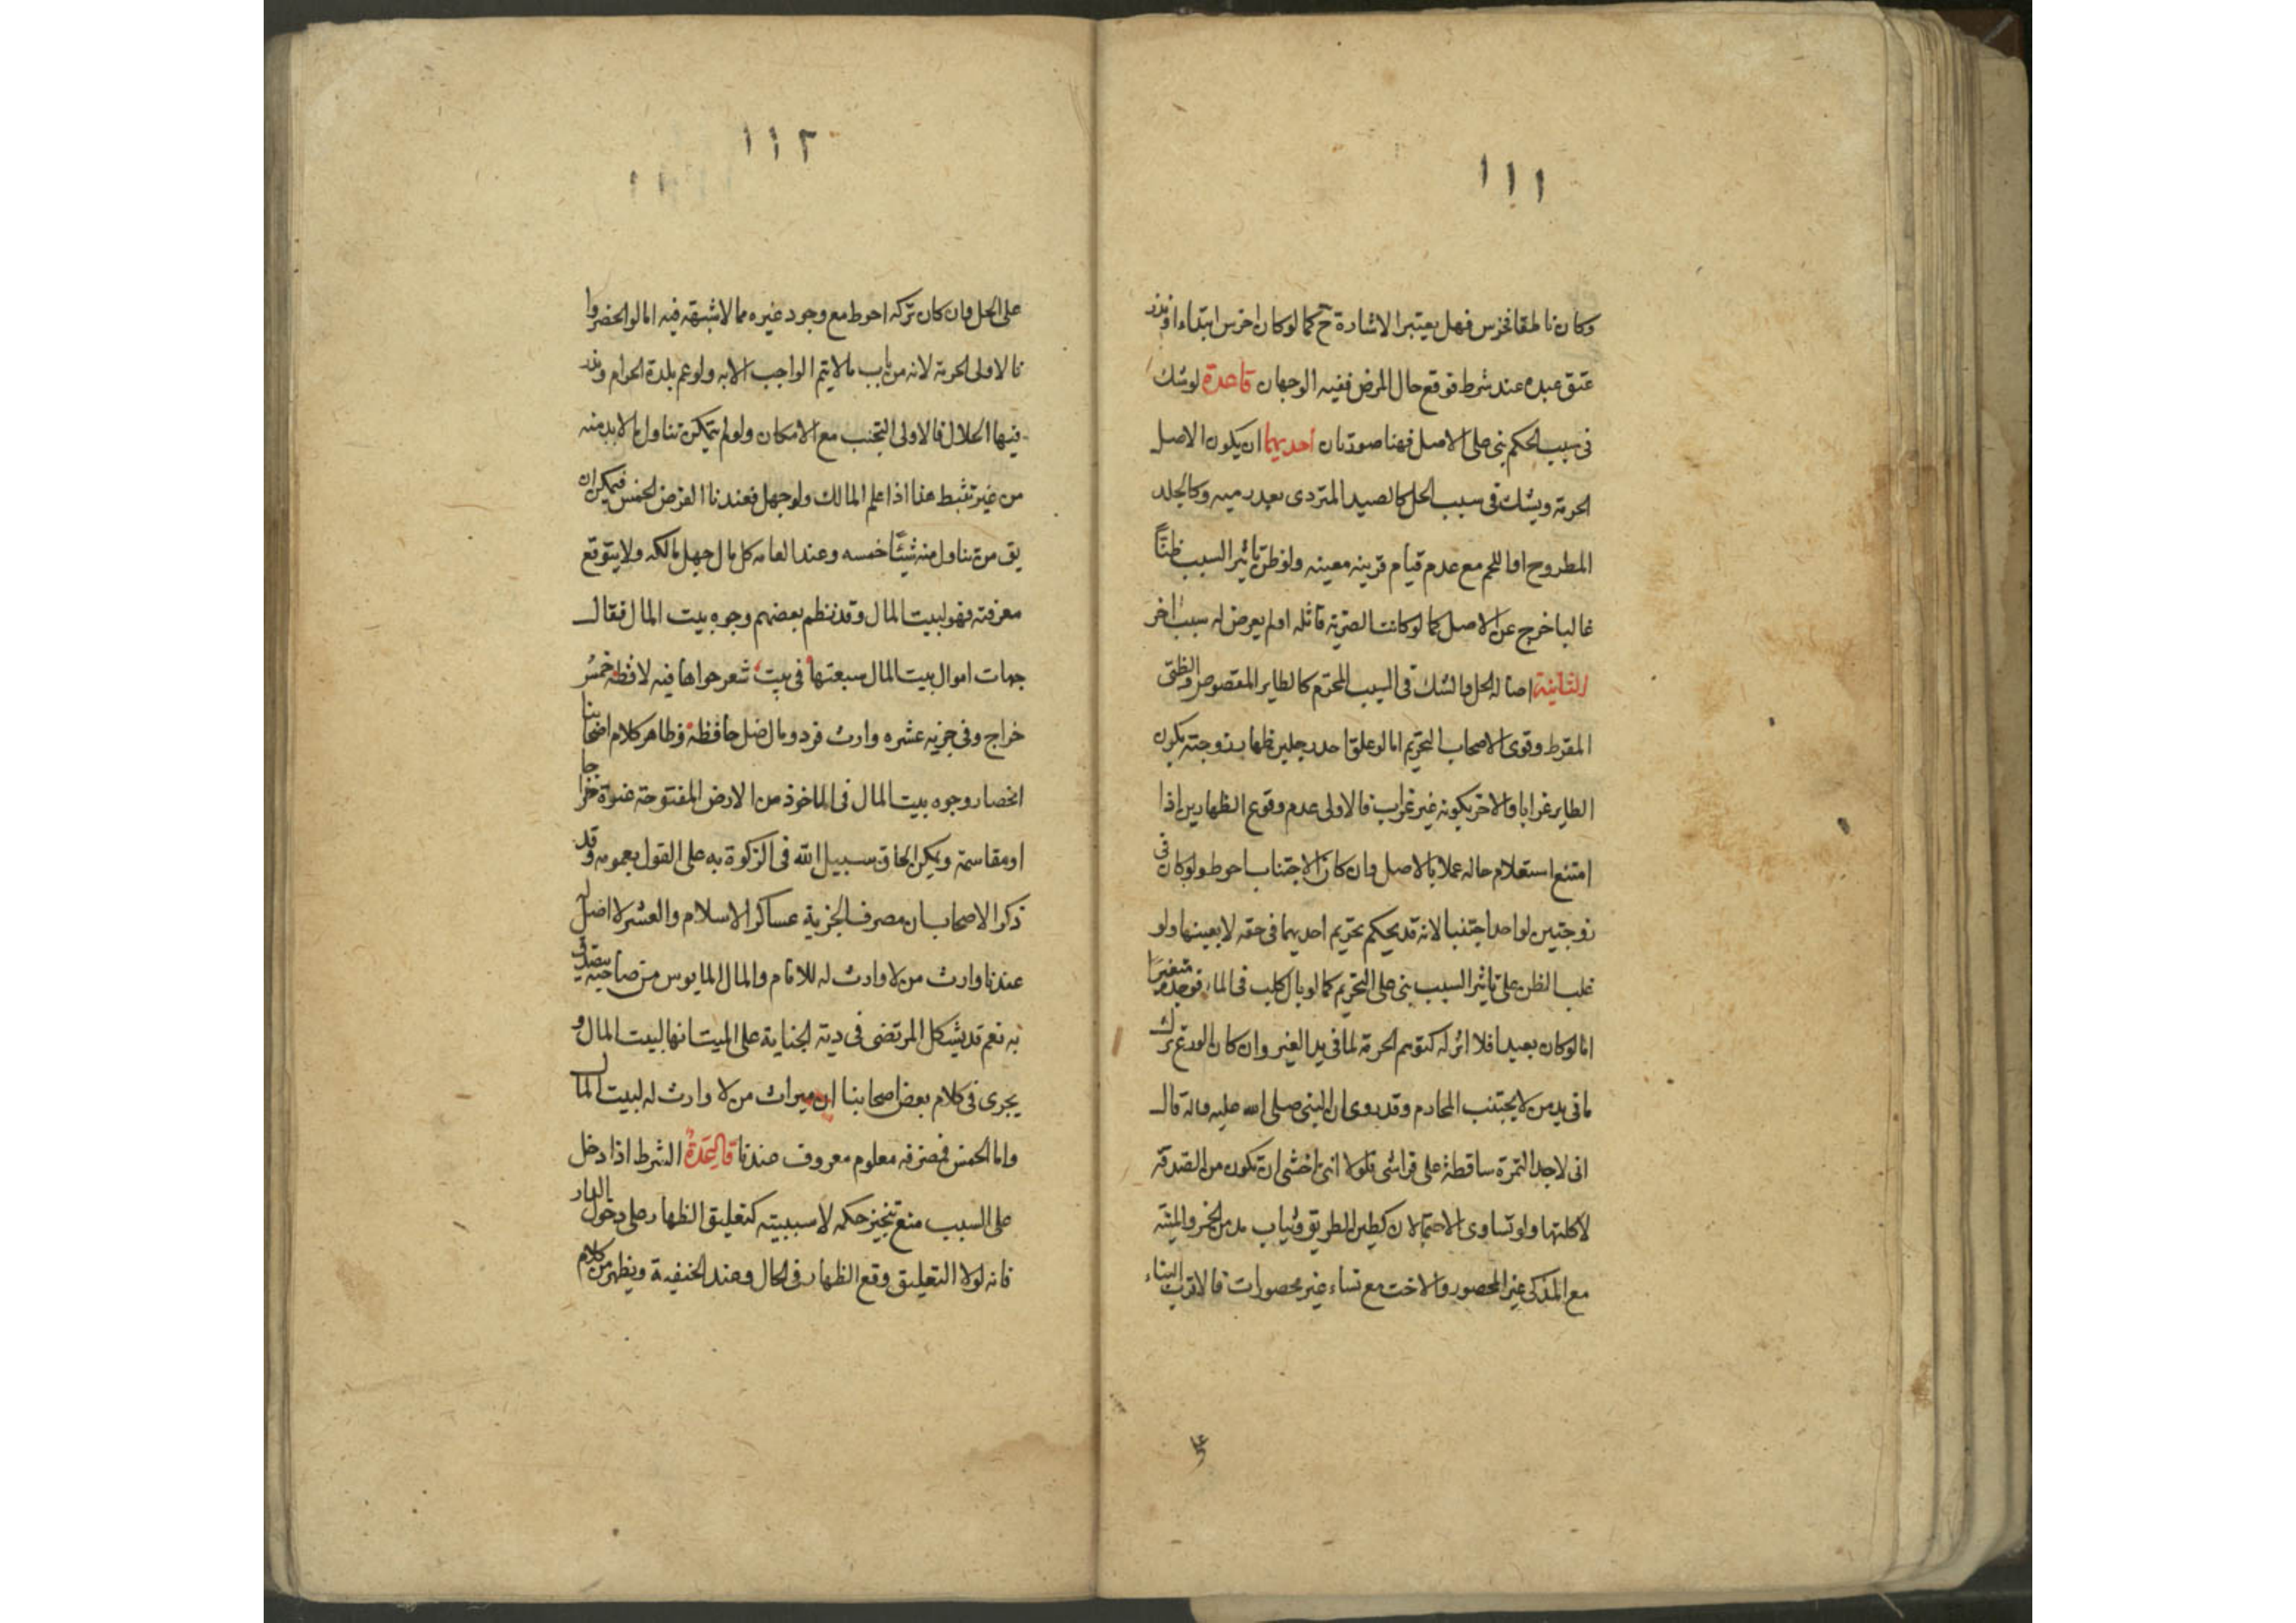 ١١١
وكان ناطقا فخرس فهل يعتبر الاشارة ح كما لو كان اخرس ابتداء او نذر
عتق عبده عند شرط فوقع حال المرض ففيه الوجهان قاعدة لو شك
فى سبب الحكم بنى على الاصل فهنا صورتان احديهما ان يكون الاصل
الحرمة ويشك فى سبب الحل كالصيد المتردى بعد رميه وكالجلد
المطروح او اللحم مع عدم قيام قرينه معينه ولو ظن تاثير السبب ظنّاً
غالبا خرج عن الاصل كما لو كانت الضربة قاتله او لم يعرض له سبب اخر
الثانية اصالة الحل والشك فى السبب المحرّم كالطاير المقصوص والظبى
المقرط وقوى الاصحاب التحريم اما لو علق احد رجلين ظهار زوجته بكون
الطاير غرابا والاخر بكونه غير غراب فالاولى عدم وقوع الظهارين اذا
امتنع استعلام حاله عملا بالاصل وان كان الاجتناب احوط ولو كان فى
زوجتين لواحد اجتنبا لانه قد يحكم بتحريم احديهما فى حقه لا بعينها ولو
غلب الظن على تاثير السبب بنى على التحريم كما لو بال كلب فى الماء فوجده متغيرًا
اما لو كان بعيدا فلا اثر له كتوهم الحرمة لما فى يد الغير وان كان الورع ترك
ما فى يد من لا يجتنب المحارم وقد روى ان النبى صلى الله عليه واله قال
انى لاجد التمرة ساقطة على فراشى فلولا انى اخشى ان تكون من الصدقة
لاكلتها ولو تساوى الاحتمالان كطين الطريق وثياب مدمن الخمر والميتة
مع المذكى غير المحصور والاخت مع نساء غير محصورات فالاقرب البناء
١١٢
على الحل وان كان تركه احوط مع وجود غيره مما لا شبهة فيه اما لو انحضروا
فالاولى الحرمة لانه من باب ما لا يتم الواجب الا به ولو عم بلدة الحرام وندر
فيها الحلال فالاولى التجنب مع الامكان ولو لم يتمكن تناول ما لا بد منه
من غير تثبط هذا اذا علم المالك ولو جهل فعندنا الفرض الخمس فيمكن ان
يق من تناول منه شيئًا خمسه وعند العامه كل مال جهل مالكه ولا يتوقع
معرفته فهو لبيت المال وقد نظم بعضهم وجوه بيت المال فقال
جهات اموال بيت المال سبعتها فى بيت شعر حواها فيه لافظه خمسُ
خراج وفى جزيه عشره وارث فرد ومال ضل حافظه وظاهر كلام اصحابنا
انحصار وجوه بيت المال فى الماخوذ من الارض المفتوحة عنوة خراجا
او مقاسمة ويمكن الحاق سبيل الله فى الزكوة به على القول بعمومه وقد
ذكر الاصحاب ان مصرف الجزية عساكر الاسلام والعشر لا اصل له
عندنا وارث من لا وارث له للامام والمال المايوس من صاحبه يتصدق
به نعم قد يشكل المرتضى فى دية الجناية على الميت انها لبيت المال و
يجرى فى كلام بعض اصحابنا ان ميراث من لا وارث له لبيت المال
واما الخمس فمصرفه معلوم معروف عندنا قاعدة الشرط اذا دخل
على السبب منع تنجيز حكمه لا سببيته كتعليق الظهار على دخول الدار
فانه لولا التعليق وقع الظهار فى الحال وعند الحنفية ويظهر من كلام